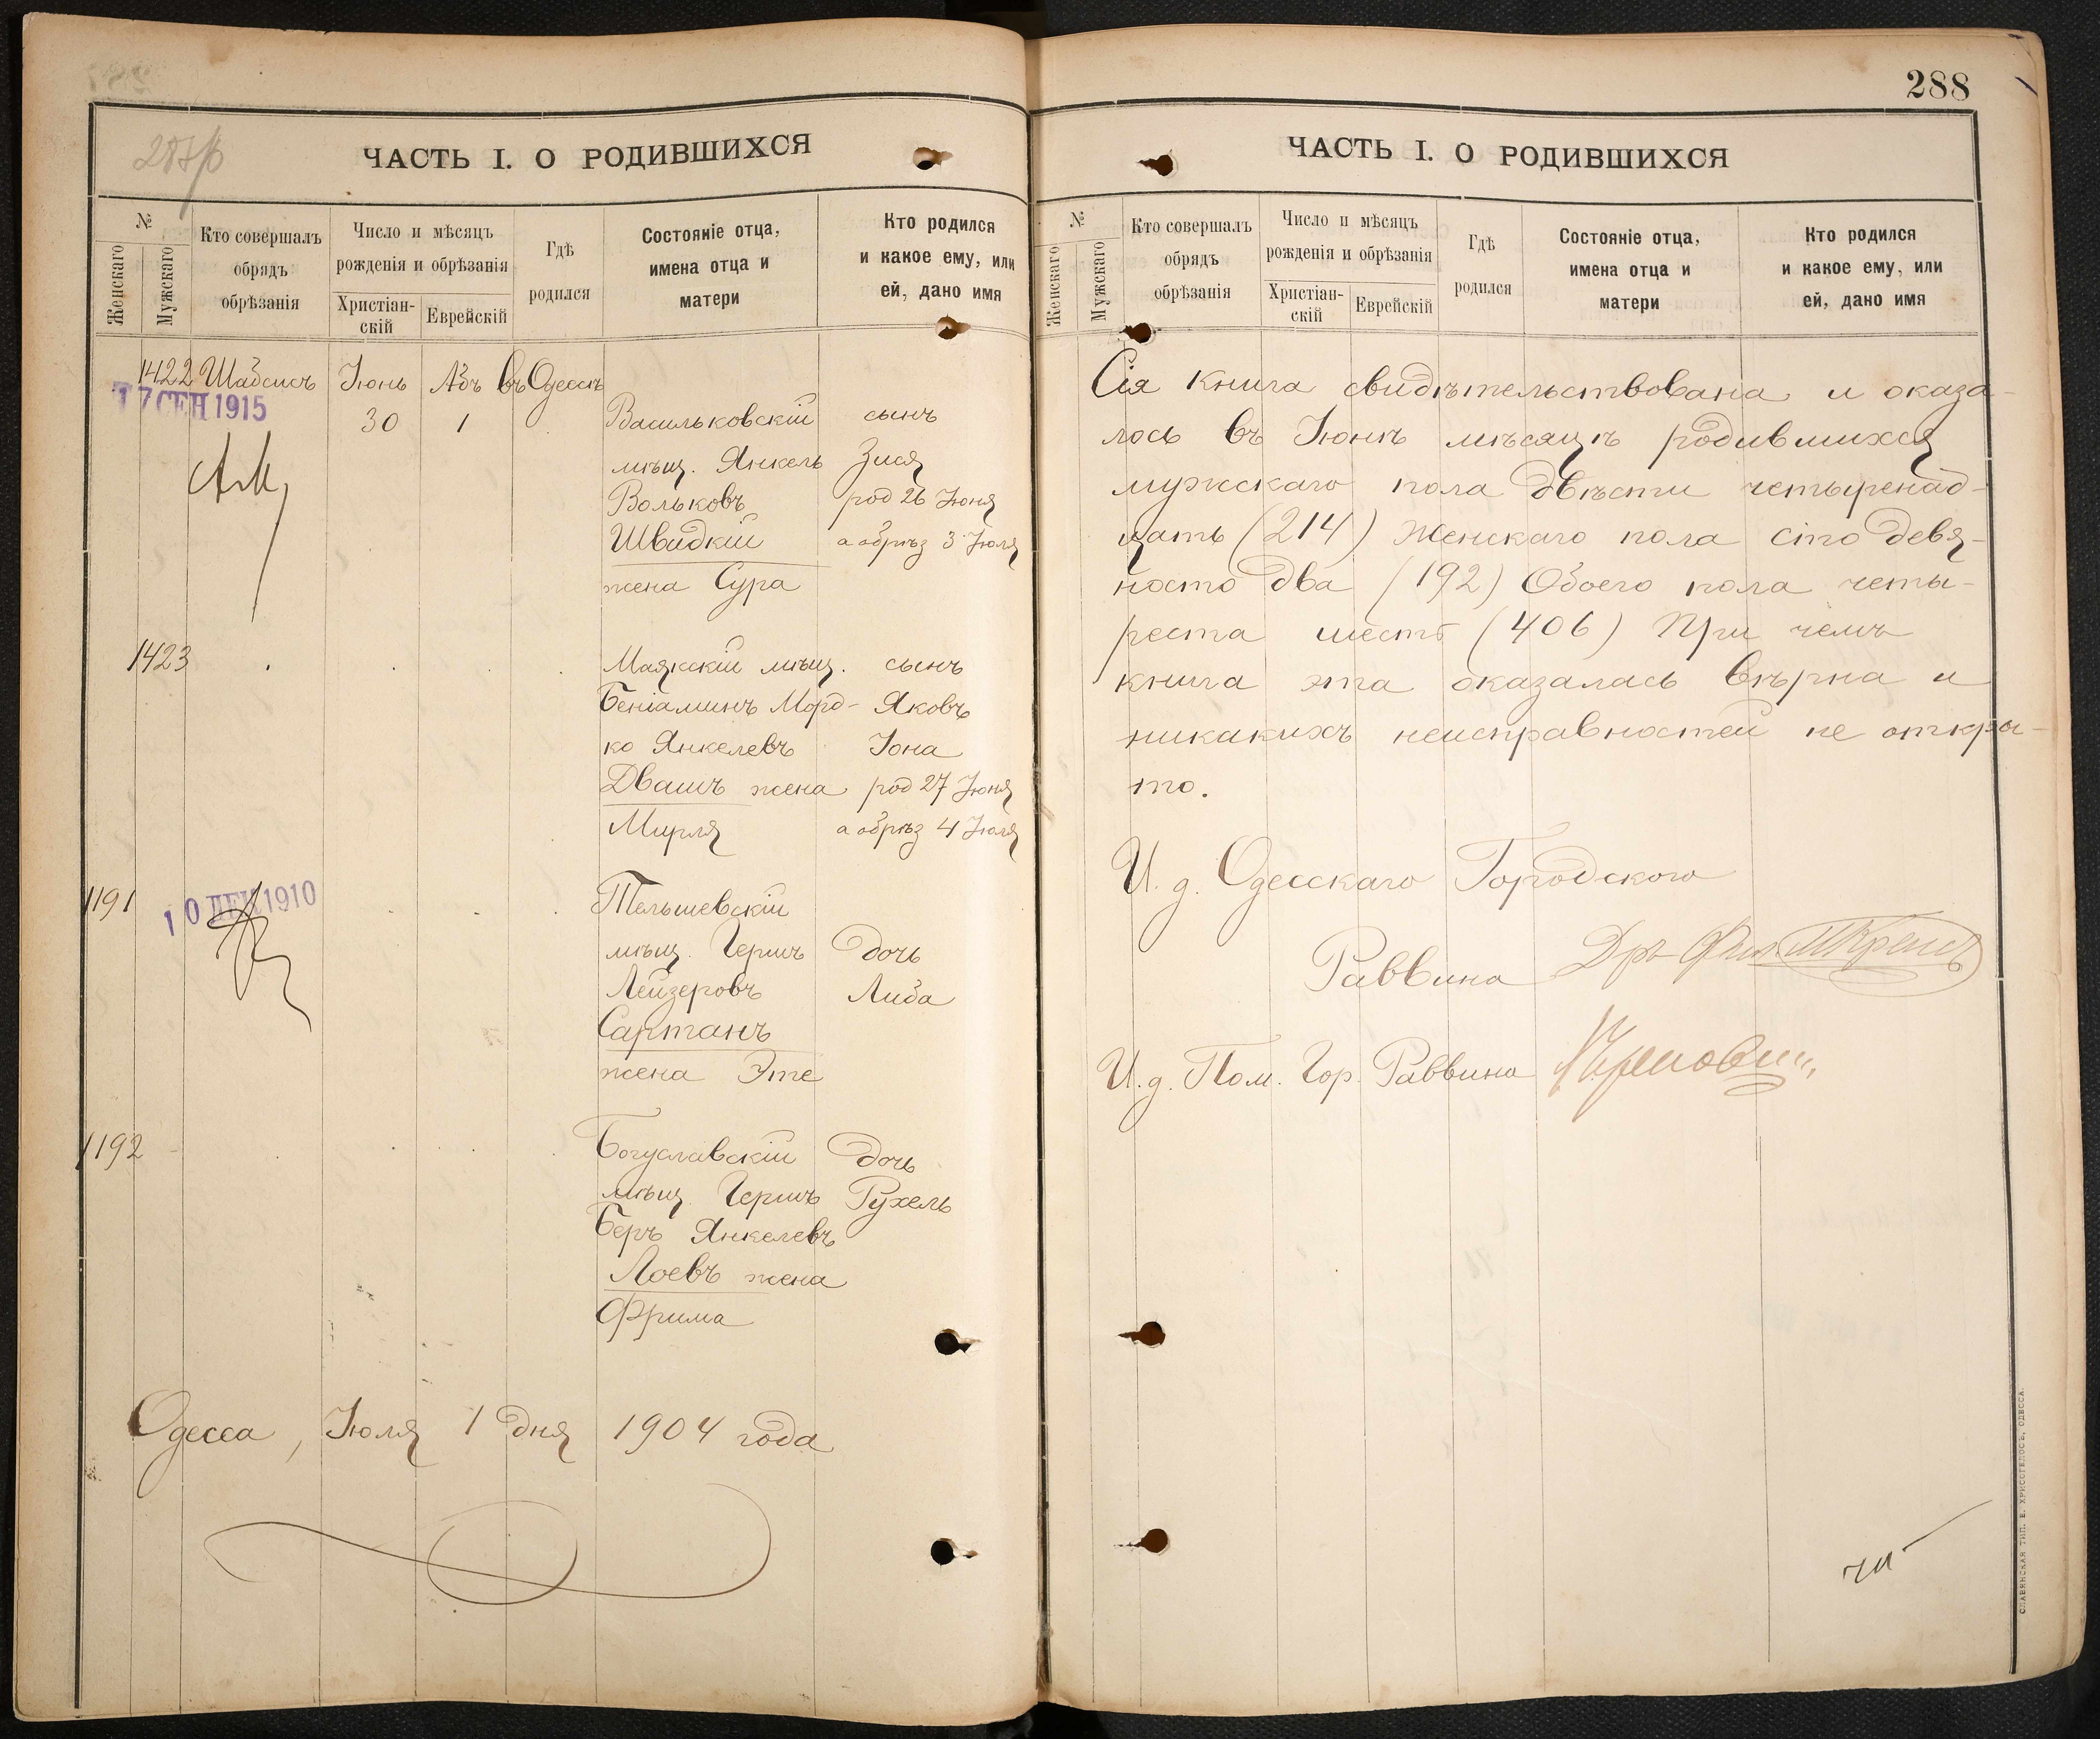 ЧАСТЬ I. О РОДИВШИХСЯ
№
Женскаго
Мужскаго
Кто совершалъ
обрядъ
обрѣзанія
Число и мѣсяцъ
рожденія и обрѣзанія
Христіан-
скій
Еврейскій
Гдѣ
родился
Состояніе отца,
имена отца и
матери
Кто родился
и какое ему, или
ей, дано имя
1422 Шабсисъ Іюнь Абъ въ Одессѣ
17 СЕН 1915
30 1 Васильковскій сынъ
мѣщ. Янкель Зися
Вольковъ род 26 Іюня
Швидкій а обрѣз 3 Іюля
жена Сура
1423 Маякскій мѣщ. сынъ
Беніаминъ Морд- Яковъ
ко Янкелевъ Іона
Двашъ жена род 27 Іюня
Мирля а обрѣз 4 Іюля
1191 Тельшевскій
10 ДЕК 1910
мѣщ. Гершъ дочь
Лейзеровъ Либа
Сартанъ
жена Эте
1192 Богуславскій дочь
мѣщ. Гершъ Рухель
Беръ Янкелевъ
Лоевъ жена
Фрима
Одесса, Іюля 1 дня 1904 года
288
ЧАСТЬ I. О РОДИВШИХСЯ
№
Женскаго
Мужскаго
Кто совершалъ
обрядъ
обрѣзанія
Число и мѣсяцъ
рожденія и обрѣзанія
Христіан-
скій
Еврейскій
Гдѣ
родился
Состояніе отца,
имена отца и
матери
Кто родился
и какое ему, или
ей, дано имя
Сія книга свидѣтельствована и оказа-
лось въ Іюнѣ мѣсяцѣ родившихся
мужскаго пола двѣсти четыренад-
цать (214) женскаго пола сто девя-
носто два (192) Обоего пола четы-
реста шесть (406) При чемъ
книга эта оказалась вѣрна и
никакихъ неисправностей не откры-
то.
И. д. Одесскаго Городского
Раввина Др Фил
И. д. Пом. Гор. Раввина
СЛАВЯНСКАЯ ТИП. Е. ХРИСОГЕЛОСЪ, ОДЕССА.